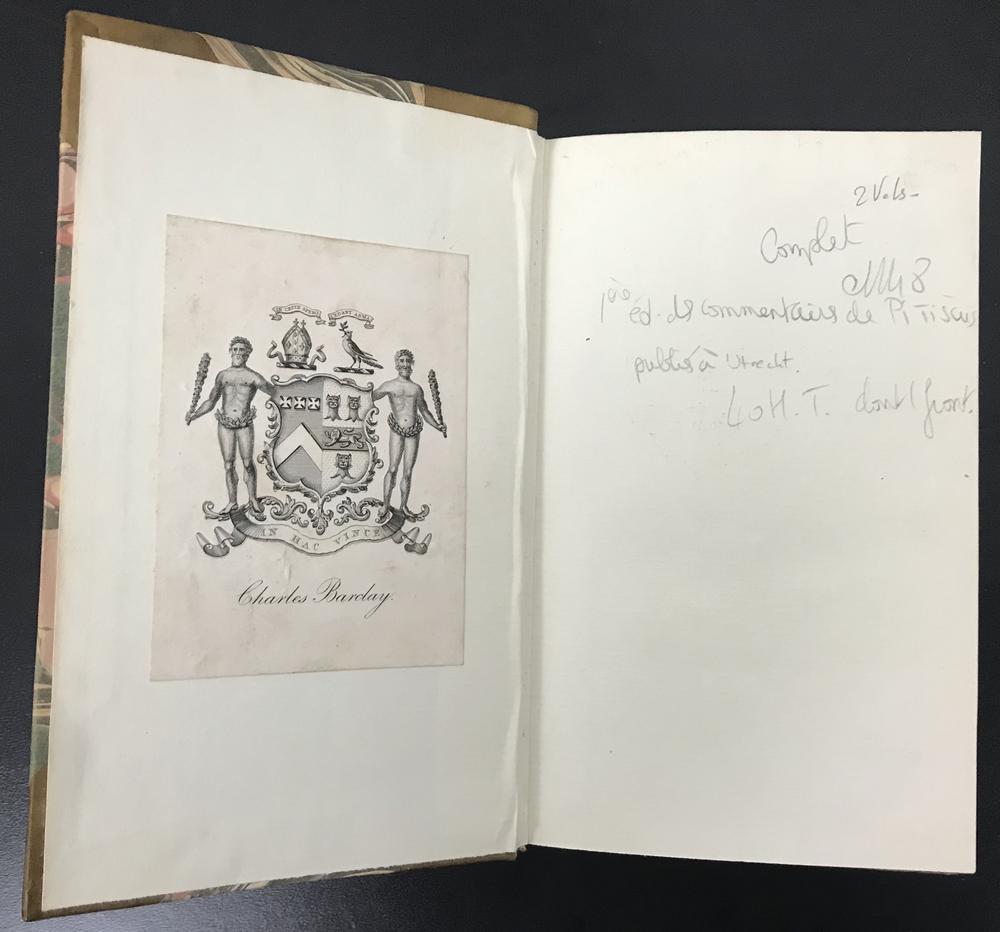 IN CRUCE SPERO
CEDANT ARMA
IN HAC VINCE
Charles Barclay.
2 Vols-
Complet
1ère éd. des commentaires de Pitiscus
publiés à Utrecht.
40 H.T. dont 1 front.